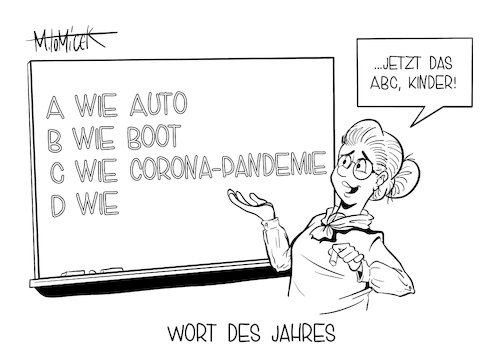 M.TOMICEK
A WIE AUTO
B WIE BOOT
C WIE CORONA-PANDEMIE
D WIE
...JETZT DAS
ABC, KINDER!
WORT DES JAHRES